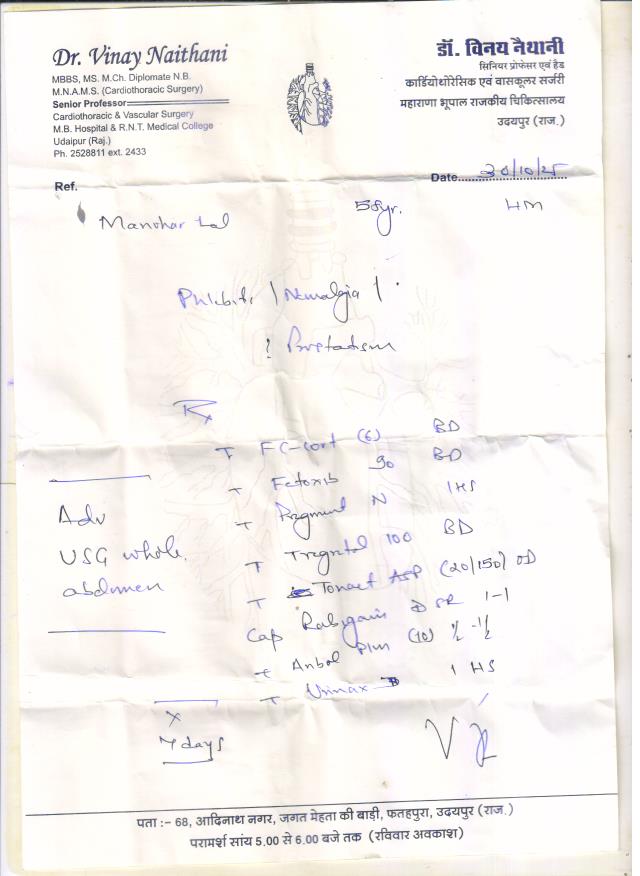 Dr. Vinay Naithani
MBBS, MS. M.Ch. Diplomate N.B.
M.N.A.M.S. (Cardiothoracic Surgery)
Senior Professor
Cardiothoracic & Vascular Surgery
M.B. Hospital & R.N.T. Medical College
Udaipur (Raj.)
Ph. 2528811 ext. 2433
डॉ. विनय नैथानी
सिनियर प्रोफेसर एवं हैड
कार्डियोथोरेसिक एवं वासकूलर सर्जरी
महाराणा भूपाल राजकीय चिकित्सालय
उदयपुर (राज.)
Ref.
Date 30/10/25
Manohar Lal 58yr. HM
Phlebitis / Neuralgia /
? Prostadism
Rx
T FC-cort (6) BD
T Fetoxib 90 BD
T N 1HS
T 100 BD
T Tonact ASP (20/150) OD
Cap SR 1-1
T Plus (10) ½-½
T Urimax 1 HS
Adv
USG whole
abdomen
x
7 days
पता :– 68, आदिनाथ नगर, जगत मेहता की बाड़ी, फतहपुरा, उदयपुर (राज.)
परामर्श सांय 5.00 से 6.00 बजे तक (रविवार अवकाश)